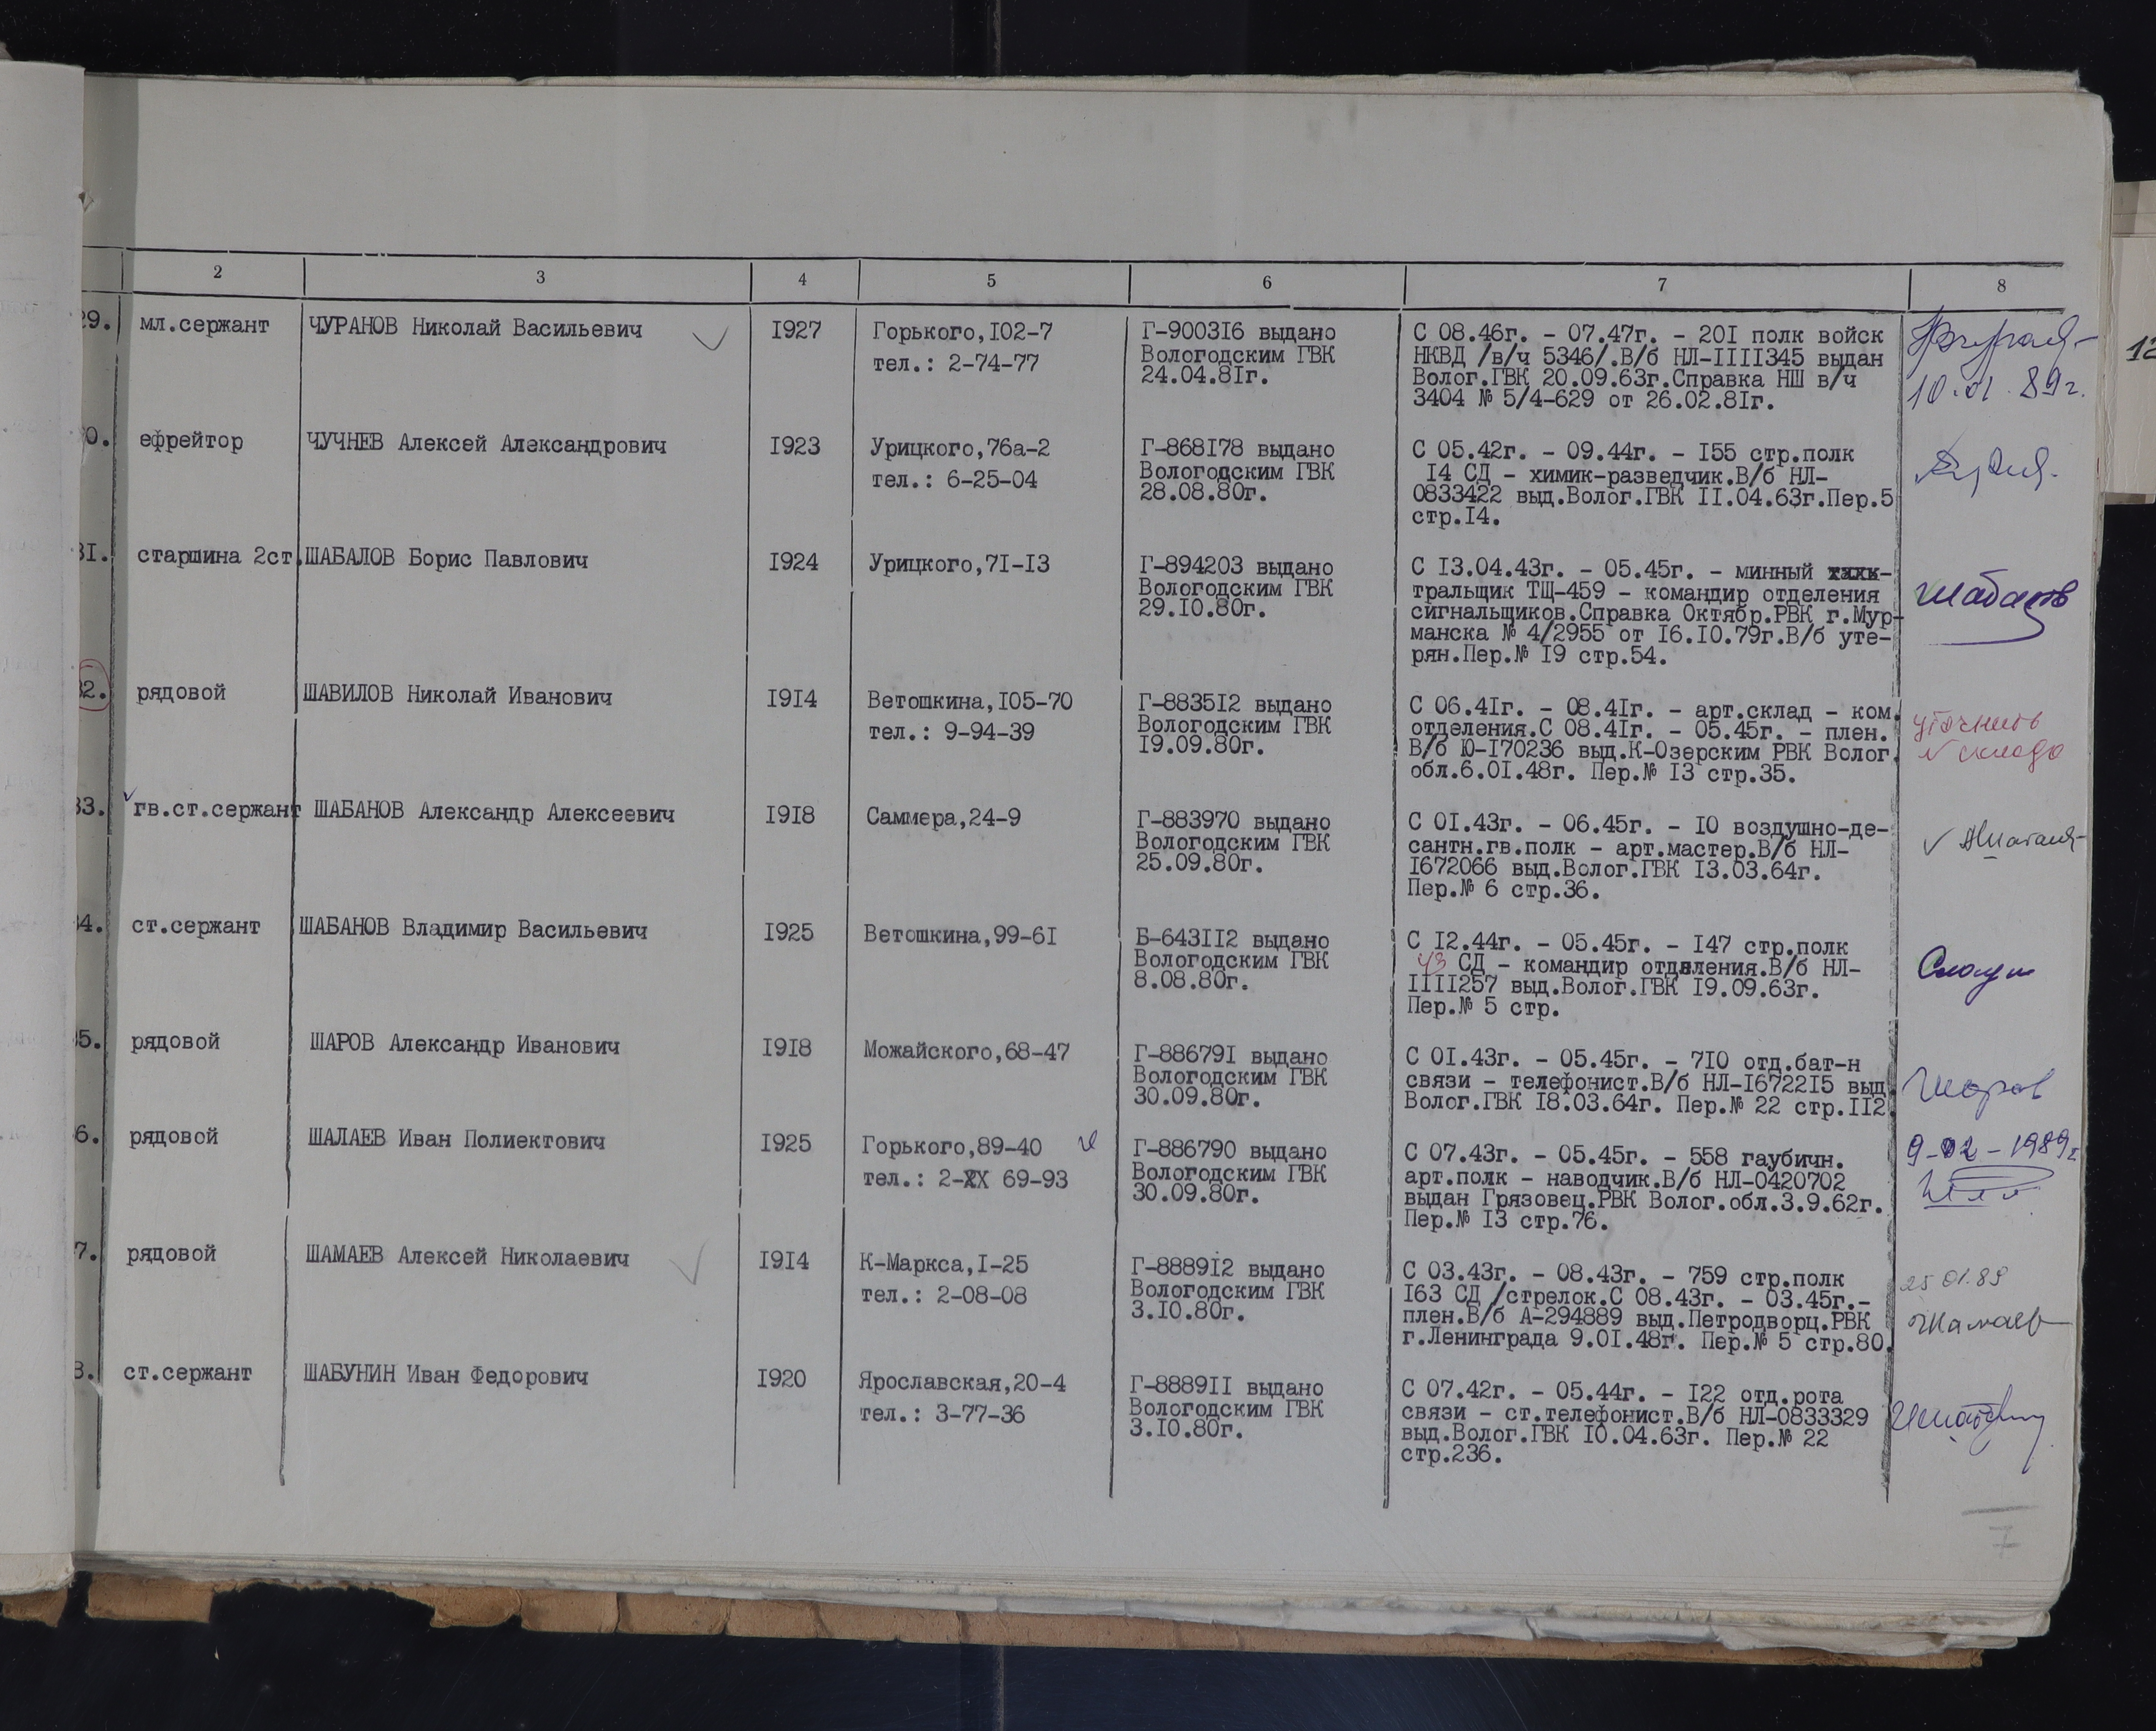 2 3 4 5 6 7 8
29. мл.сержант ЧУРАНОВ Николай Васильевич I927 Горького,I02-7 Г-9003I6 выдано С 08.46г. - 07.47г. - 20I полк войск
тел.: 2-74-77 Вологодским ГВК НКВД /в/ч 5346/.В/б НЛ-IIII345 выдан
24.04.8Iг. Волог.ГВК 20.09.63г.Справка НШ в/ч
3404 № 5/4-629 от 26.02.8Iг. 10.01.89г.
12
0. ефрейтор ЧУЧНЕВ Алексей Александрович I923 Урицкого,76а-2 Г-868I78 выдано С 05.42г. - 09.44г. - I55 стр.полк
тел.: 6-25-04 Вологодским ГВК I4 СД - химик-разведчик.В/б НЛ-
28.08.80г. 0833422 выд.Волог.ГВК II.04.63г.Пер.5
стр.I4.
3I. старшина 2ст. ШАБАЛОВ Борис Павлович I924 Урицкого,7I-I3 Г-894203 выдано С I3.04.43г. - 05.45г. - минный
Вологодским ГВК тральщик ТЩ-459 - командир отделения Шабалов
29.I0.80г. сигнальщиков.Справка Октябр.РВК г.Мур-
манска № 4/2955 от I6.I0.79г.В/б уте-
рян.Пер.№ I9 стр.54.
32. рядовой ШАВИЛОВ Николай Иванович I9I4 Ветошкина,I05-70 Г-8835I2 выдано С 06.4Iг. - 08.4Iг. - арт.склад - ком.
тел.: 9-94-39 Вологодским ГВК отделения.С 08.4Iг. - 05.45г. - плен. уточнить
I9.09.80г. В/б Ю-I70236 выд.К-Озерским РВК Волог. № склада
обл.6.0I.48г. Пер.№ I3 стр.35.
33. гв.ст.сержант ШАБАНОВ Александр Алексеевич I9I8 Саммера,24-9 Г-883970 выдано С 0I.43г. - 06.45г. - I0 воздушно-де-
Вологодским ГВК сантн.гв.полк - арт.мастер.В/б НЛ-
25.09.80г. I672066 выд.Волог.ГВК I3.03.64г.
Пер.№ 6 стр.36.
4. ст.сержант ШАБАНОВ Владимир Васильевич I925 Ветошкина,99-6I Б-643II2 выдано С I2.44г. - 05.45г. - I47 стр.полк
Вологодским ГВК 43 СД - командир отделения.В/б НЛ-
8.08.80г. IIII257 выд.Волог.ГВК I9.09.63г.
Пер.№ 5 стр.
5. рядовой ШАРОВ Александр Иванович I9I8 Можайского,68-47 Г-88679I выдано С 0I.43г. - 05.45г. - 7I0 отд.бат-н
Вологодским ГВК связи - телефонист.В/б НЛ-I6722I5 выд. Шаров
30.09.80г. Волог.ГВК I8.03.64г. Пер.№ 22 стр.II2.
6. рядовой ШАЛАЕВ Иван Полиектович I925 Горького,89-40 Г-886790 выдано С 07.43г. - 05.45г. - 558 гаубичн. 9-02-1989г.
тел.: 2-XX 69-93 Вологодским ГВК арт.полк - наводчик.В/б НЛ-0420702
30.09.80г. выдан Грязовец.РВК Волог.обл.3.9.62г.
Пер.№ I3 стр.76.
7. рядовой ШАМАЕВ Алексей Николаевич I9I4 К-Маркса,I-25 Г-8889I2 выдано С 03.43г. - 08.43г. - 759 стр.полк 25 01.89
тел.: 2-08-08 Вологодским ГВК I63 СД /стрелок.С 08.43г. - 03.45г.-
3.I0.80г. плен.В/б А-294889 выд.Петродворц.РВК Шамаев
г.Ленинграда 9.0I.48г. Пер.№ 5 стр.80.
8. ст.сержант ШАБУНИН Иван Федорович I920 Ярославская,20-4 Г-8889II выдано С 07.42г. - 05.44г. - I22 отд.рота
тел.: 3-77-36 Вологодским ГВК связи - ст.телефонист.В/б НЛ-0833329
3.I0.80г. выд.Волог.ГВК I0.04.63г. Пер.№ 22
стр.236.
7